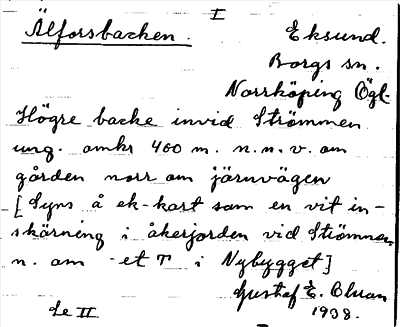 I
Älforsbacken.
Eksund.
Borgs sn.
Norrköping Ögl.
Högre backe invid Strömmen
ung. omkr 400 m. n.n.v. om
gården norr om järnvägen
[Syns å ek-kart som en vit in-
skärning i åkerjorden vid Strömmen
n. om et T i Nybygget]
Gustaf E. Bluan
1938.
Se II